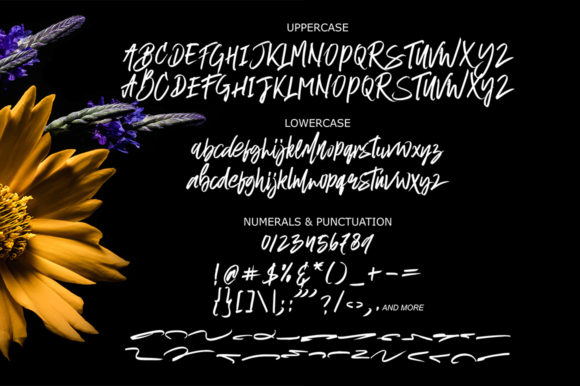 UPPERCASE
ABCDEFGHIJKLMNOPQRSTUVWXYZ
ABCDEFGHIJKLMNOPQRSTUVWXYZ
LOWERCASE
abcdefghijklmnopqrstuvwxyz
abcdefghijklmnopqrstuvwxyz
NUMERALS & PUNCTUATION
0123456789
!@#$%&*()_+-=
{}[]\|;:'"?/<>,. AND MORE